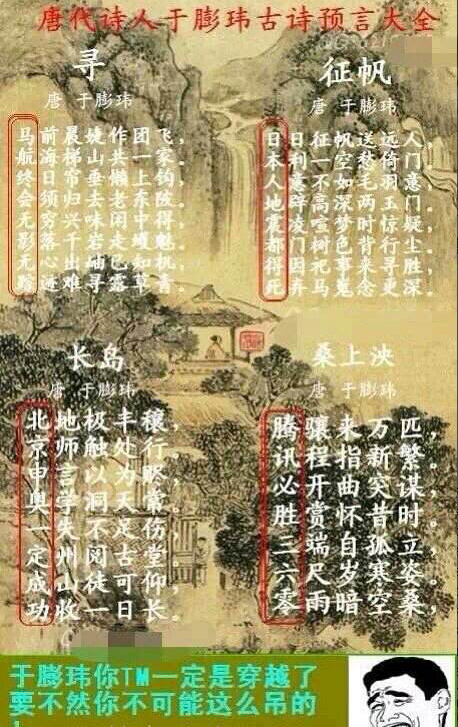 唐代诗人于膨玮古诗预言大全
寻
唐 于膨玮
马前晨婕作团飞，
航海梯山共一家。
终日帘垂懒上钩，
会须归去老东陂。
无穷兴味闲中得，
影落千岩走蠼魁。
无心出岫已知机，
踪迹难寻露草青。
征帆
唐 于膨玮
日日征帆送远人，
本利一空愁倚门。
人意不如毛羽意，
地辟高深两玉门。
震凌喧梦时惊疑
都门树色背行尘
得因祀事来寻胜
死弃马鬼念更深。
长岛
唐 于膨玮
北地极丰穰，
京师触处行。
申言以为眂，
奥学洞天常。
一失不足伤
定州阅古堂
成山徒可仰，
功收一日长。
桑上泱
唐 于膨玮
腾骧来万匹
讯程指新繁。
必开曲突谋，
胜赏怀昔时
三端自孤立
六尺岁寒姿
零雨暗空桑，
于膨玮你TM一定是穿越了
要不然你不可能这么吊的